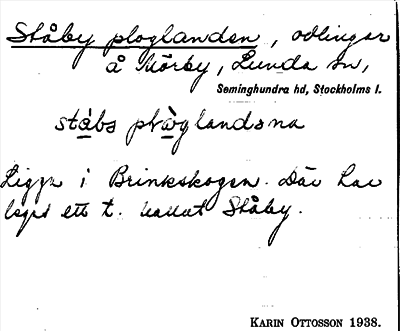 Ståby ploglanden, odlingar
å Mörby, Lunda sn,
Seminghundra hd, Stockholms l.
stå̀bs plò̀glandəna
Ligger i Brinkskogen. Där har
legat ett t. kallat Ståby.
KARIN OTTOSSON 1938.